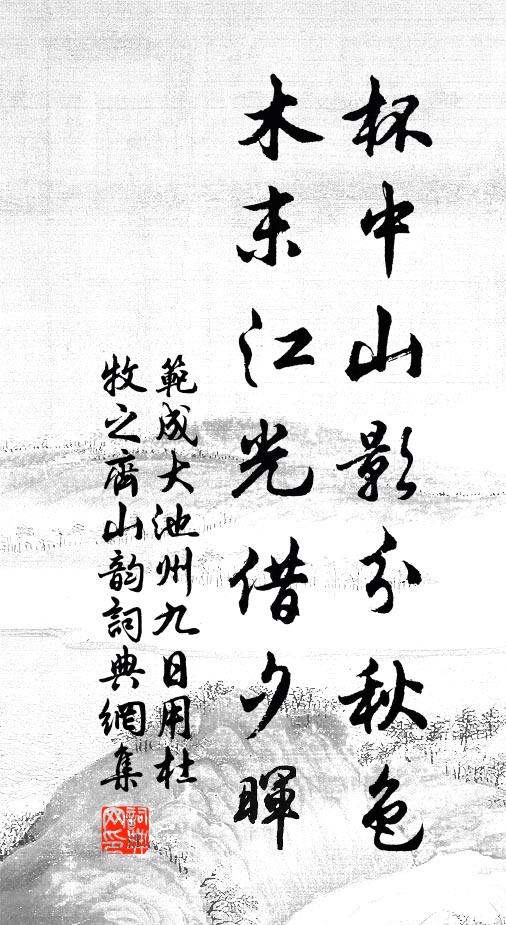 杯中山影分秋色
木末江光借夕暉
範成大池州九日用杜
牧之齊山韵詞典網集